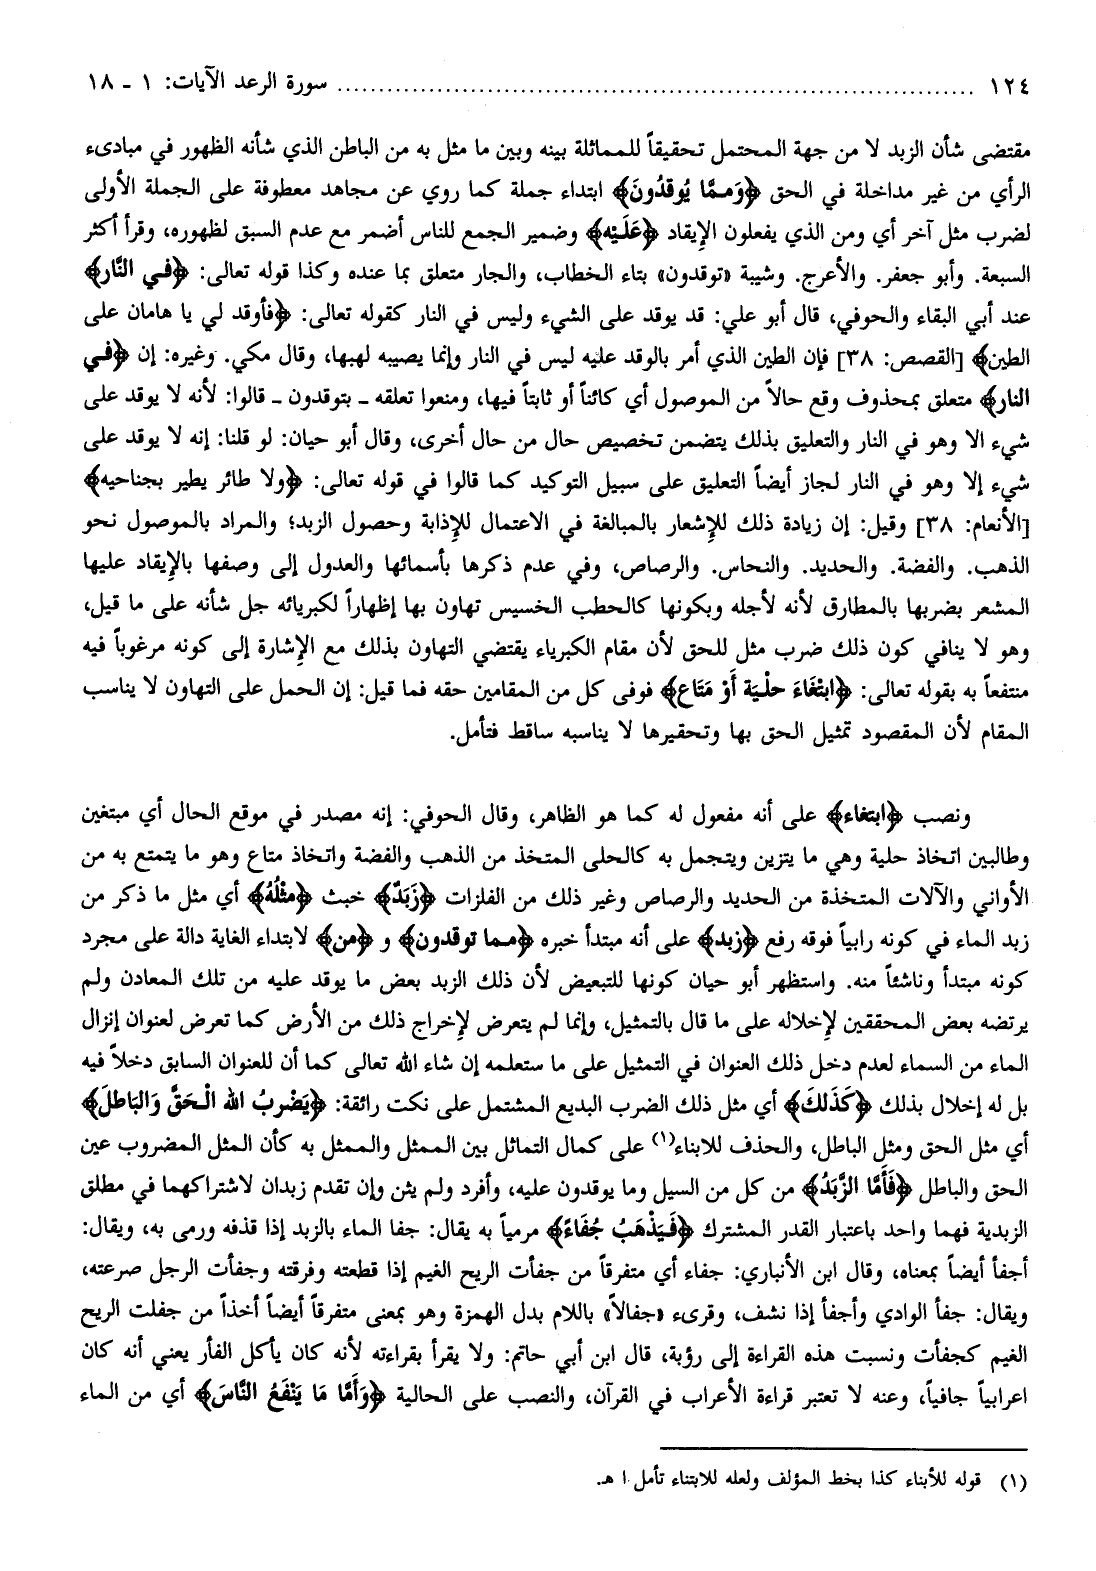 ١٢٤ ........................................................................ سورة الرعد الآيات: ١ ـ ١٨
مقتضى شأن الزبد لا من جهة المحتمل تحقيقاً للمماثلة بينه وبين ما مثل به من الباطن الذي شأنه الظهور في مبادىء
الرأي من غير مداخلة في الحق ﴿وَمِمَّا يُوقِدُونَ﴾ ابتداء جملة كما روي عن مجاهد معطوفة على الجملة الأولى
لضرب مثل آخر أي ومن الذي يفعلون الإيقاد ﴿عَلَيْهِ﴾ وضمير الجمع للناس أضمر مع عدم السبق لظهوره، وقرأ أكثر
السبعة. وأبو جعفر. والأعرج. وشيبة «توقدون» بتاء الخطاب، والجار متعلق بما عنده وكذا قوله تعالى: ﴿فِي النَّارِ﴾
عند أبي البقاء والحوفي، قال أبو علي: قد يوقد على الشيء وليس في النار كقوله تعالى: ﴿فأوقد لي يا هامان على
الطين﴾ [القصص: ٣٨] فإن الطين الذي أمر بالوقد عليه ليس في النار وإنما يصيبه لهبها، وقال مكي. وغيره: إن ﴿في
النار﴾ متعلق بمحذوف وقع حالاً من الموصول أي كائناً أو ثابتاً فيها، ومنعوا تعلقه ـ بتوقدون ـ قالوا: لأنه لا يوقد على
شيء الا وهو في النار والتعليق بذلك يتضمن تخصيص حال من حال أخرى، وقال أبو حيان: لو قلنا: إنه لا يوقد على
شيء إلا وهو في النار لجاز أيضاً التعليق على سبيل التوكيد كما قالوا في قوله تعالى: ﴿ولا طائر يطير بجناحيه﴾
[الأنعام: ٣٨] وقيل: إن زيادة ذلك للإشعار بالمبالغة في الاعتمال للإذابة وحصول الزبد؛ والمراد بالموصول نحو
الذهب. والفضة. والحديد. والنحاس. والرصاص، وفي عدم ذكرها بأسمائها والعدول إلى وصفها بالإيقاد عليها
المشعر بضربها بالمطارق لأنه لأجله وبكونها كالحطب الخسيس تهاون بها إظهاراً لكبريائه جل شأنه على ما قيل،
وهو لا ينافي كون ذلك ضرب مثل للحق لأن مقام الكبرياء يقتضي التهاون بذلك مع الإشارة إلى كونه مرغوباً فيه
منتفعاً به بقوله تعالى: ﴿ابْتِغَاءَ حِلْيَةٍ أَوْ مَتَاعٍ﴾ فوفى كل من المقامين حقه فما قيل: إن الحمل على التهاون لا يناسب
المقام لأن المقصود تمثيل الحق بها وتحقيرها لا يناسبه ساقط فتأمل.
ونصب ﴿ابتغاء﴾ على أنه مفعول له كما هو الظاهر، وقال الحوفي: إنه مصدر في موقع الحال أي مبتغين
وطالبين اتخاذ حلية وهي ما يتزين ويتجمل به كالحلى المتخذ من الذهب والفضة واتخاذ متاع وهو ما يتمتع به من
الأواني والآلات المتخذة من الحديد والرصاص وغير ذلك من الفلزات ﴿زَبَدٌ﴾ خبث ﴿مِثْلُهُ﴾ أي مثل ما ذكر من
زبد الماء في كونه رابياً فوقه رفع ﴿زبد﴾ على أنه مبتدأ خبره ﴿مما توقدون﴾ و ﴿من﴾ لابتداء الغاية دالة على مجرد
كونه مبتدأ وناشئاً منه. واستظهر أبو حيان كونها للتبعيض لأن ذلك الزبد بعض ما يوقد عليه من تلك المعادن ولم
يرتضه بعض المحققين لإخلاله على ما قال بالتمثيل، وإنما لم يتعرض لإخراج ذلك من الأرض كما تعرض لعنوان إنزال
الماء من السماء لعدم دخل ذلك العنوان في التمثيل على ما ستعلمه إن شاء الله تعالى كما أن للعنوان السابق دخلاً فيه
بل له إخلال بذلك ﴿كَذَلِكَ﴾ أي مثل ذلك الضرب البديع المشتمل على نكت رائقة: ﴿يَضْرِبُ الله الْحَقَّ وَالبَاطِلَ﴾
أي مثل الحق ومثل الباطل، والحذف للابناء(١) على كمال التماثل بين الممثل والممثل به كأن المثل المضروب عين
الحق والباطل ﴿فَأَمَّا الزَّبَدُ﴾ من كل من السيل وما يوقدون عليه، وأفرد ولم يثن وإن تقدم زبدان لاشتراكهما في مطلق
الزبدية فهما واحد باعتبار القدر المشترك ﴿فَيَذْهَبُ جُفَاءً﴾ مرمياً به يقال: جفا الماء بالزبد إذا قذفه ورمى به، ويقال:
أجفأ أيضاً بمعناه، وقال ابن الأنباري: جفاء أي متفرقاً من جفأت الريح الغيم إذا قطعته وفرقته وجفأت الرجل صرعته،
ويقال: جفأ الوادي وأجفأ إذا نشف، وقرىء «جفالاً» باللام بدل الهمزة وهو بمعنى متفرقاً أيضاً أخذاً من جفلت الريح
الغيم كجفأت ونسبت هذه القراءة إلى رؤبة، قال ابن أبي حاتم: ولا يقرأ بقراءته لأنه كان يأكل الفأر يعني أنه كان
اعرابياً جافياً، وعنه لا تعتبر قراءة الأعراب في القرآن، والنصب على الحالية ﴿وَأَمَّا مَا يَنْفَعُ النَّاسَ﴾ أي من الماء
(١) قوله للأبناء كذا بخط المؤلف ولعله للابتناء تأمل ا هـ.